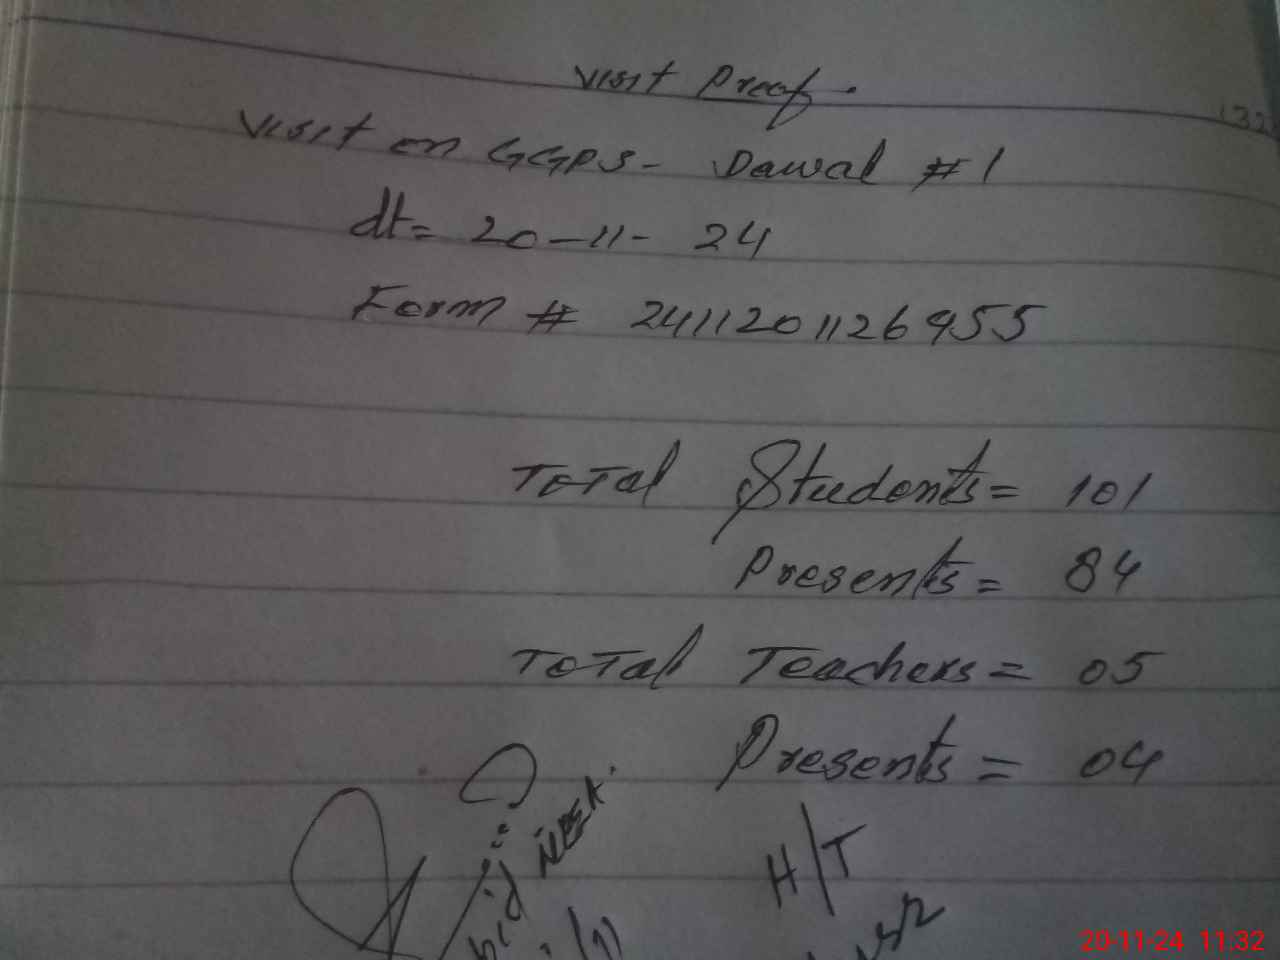 Visit Proof.
Visit on GGPS - Dawal # 1
dt= 20-11-24
Form # 2411201126955
Total Students = 101
Presents = 84
Total Teachers = 05
Presents = 04
H/T
20-11-24 11:32